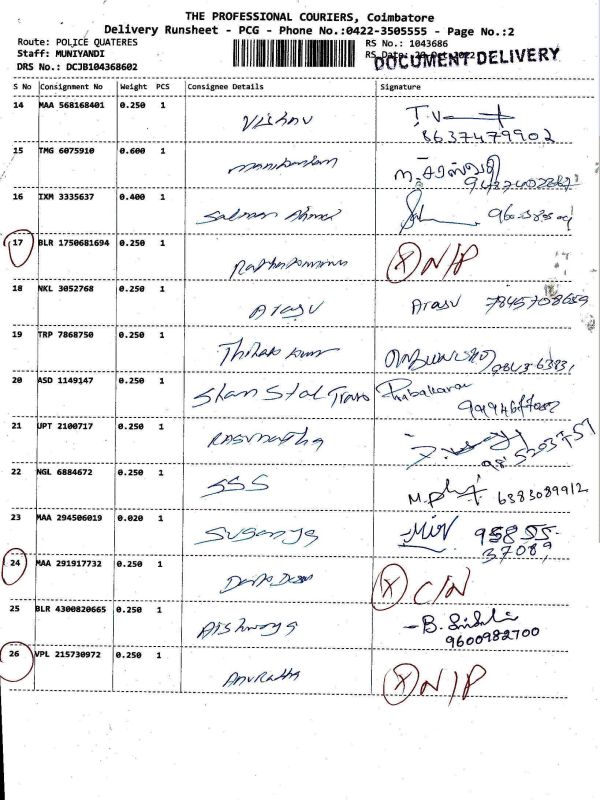 THE PROFESSIONAL COURIERS, Coimbatore
Delivery Runsheet - PCG - Phone No.:0422-3505555 - Page No.:2
Route: POLICE QUATERES
RS No.: 1043686
Staff: MUNIYANDI
RS Date:
DOCUMENT DELIVERY
DRS No.: DCJB104368602
S No Consignment No Weight PCS Consignee Details Signature
14 MAA 568168401 0.250 1 Vishnu T.V
8637479902
15 TMG 6075910 0.600 1 manikandan
16 IXM 3335637 0.400 1 Salman Ahmed
17 BLR 1750681694 0.250 1 N/P
18 NKL 3052768 0.250 1 Arasu Arasu 7845708689
19 TRP 7868750 0.250 1 Thilak kumar
20 ASD 1149147 0.250 1 Sham Stal Trans Prabakaran
21 UPT 2100717 0.250 1
22 NGL 6884672 0.250 1 SSS 6383089912
23 MAA 294506019 0.020 1 Suganya 95855
37089
24 MAA 291917732 0.250 1 C/N
25 BLR 4300820665 0.250 1 Aishwarya B.
9600982700
26 VPL 215730972 0.250 1 Anuradha N/P